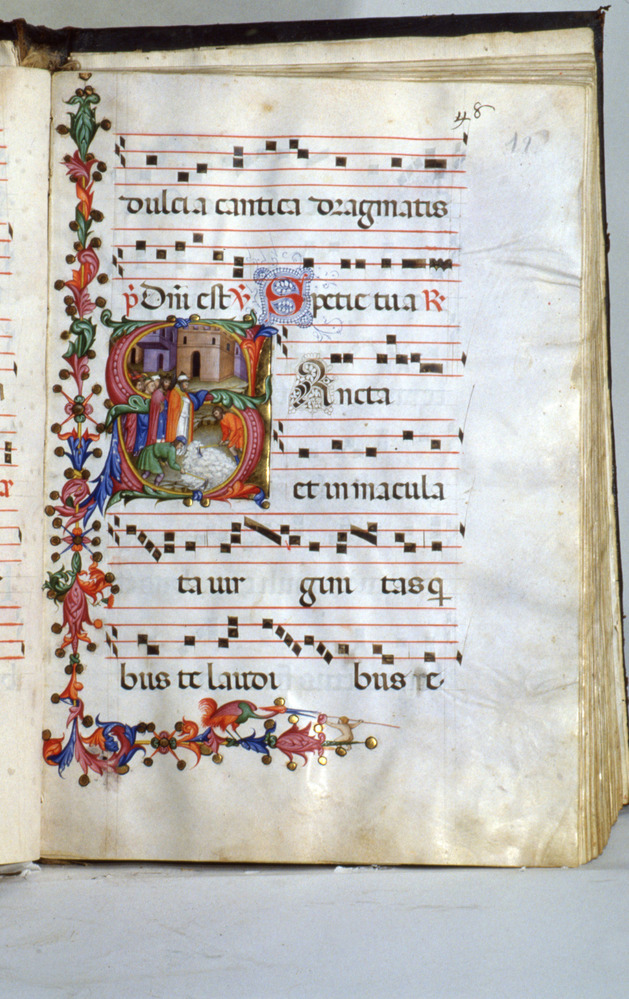 48
dulcia cantica dragmatis
ps Dm̄ est ℣ Specie tua R
SAncta
et inmacula
ta uir gini tas q̄
bus te laudi bus re